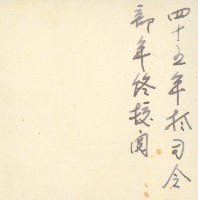 四十五年於司令
部年終校閱